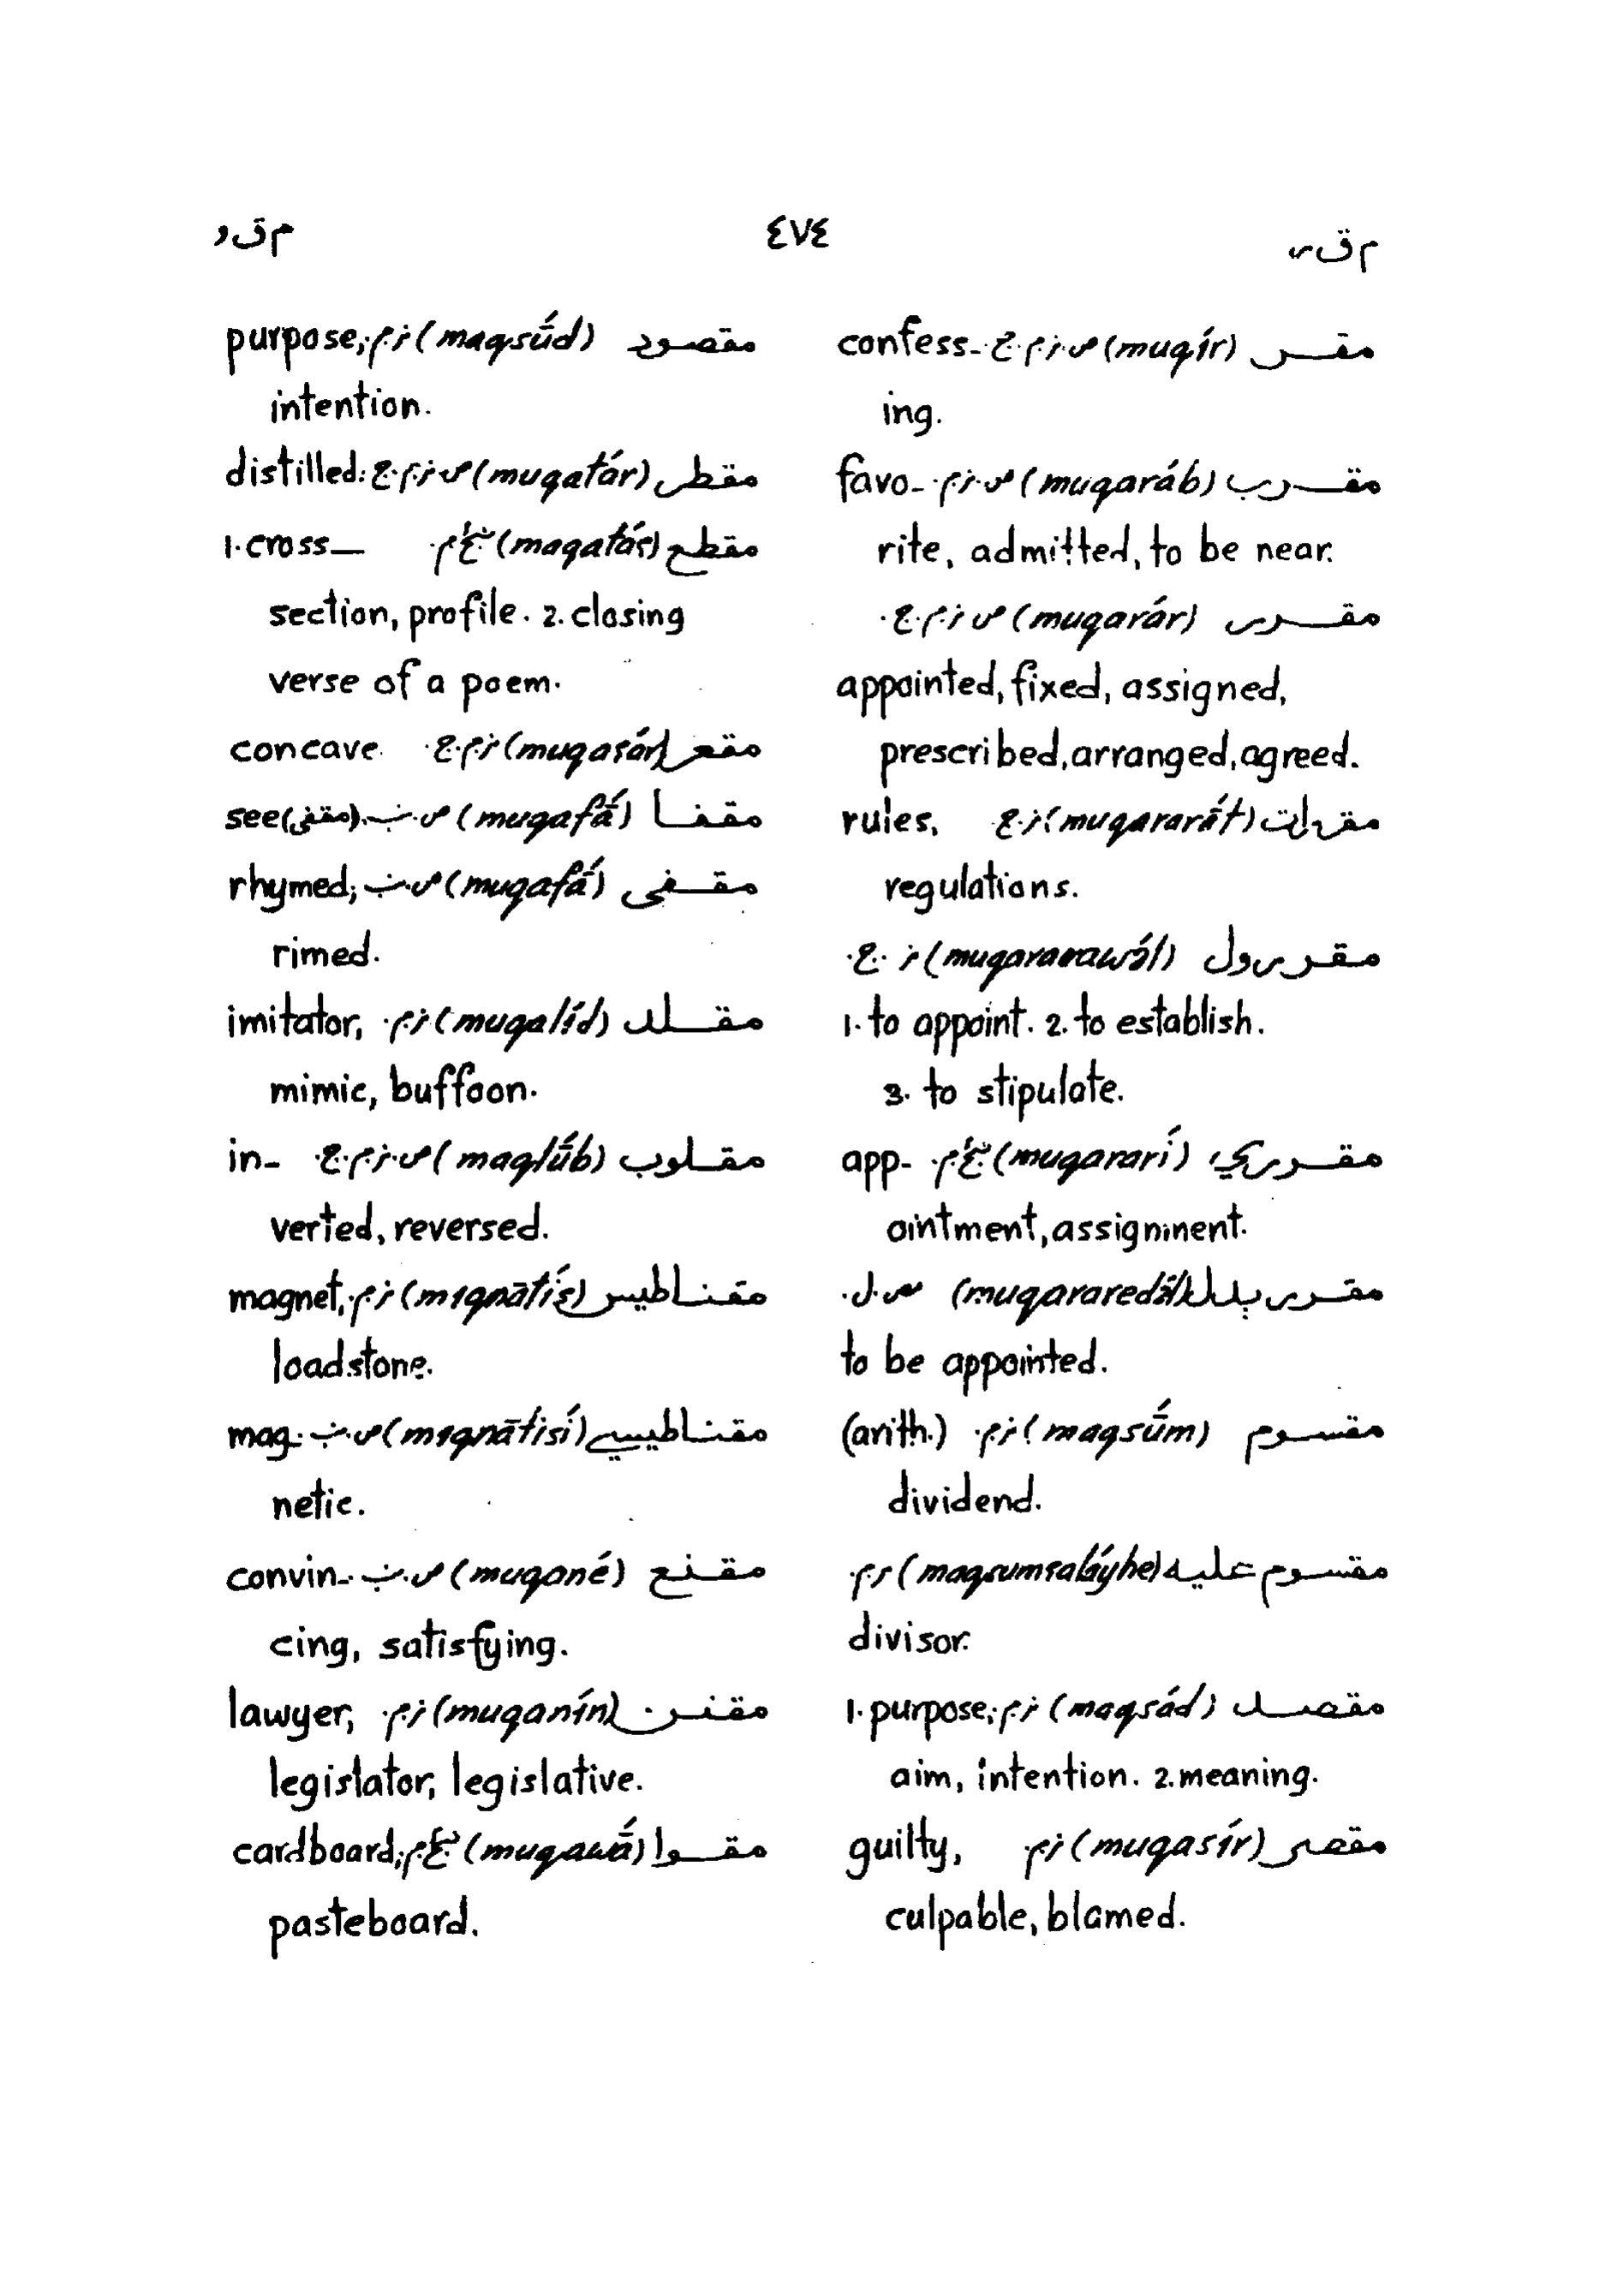 م ق ر ٤٧٤ م ق و
مقـــر (muqír) ص ن م ج. confess-
ing.
مقـــرب (muqaráb) ص ن م. favo-
rite, admitted, to be near.
مقـــرر (muqarár) ص ن م ج.
appointed, fixed, assigned,
prescribed, arranged, agreed.
مقررات (muqararā́t) ن ج rules,
regulations.
مقـررول (muqararawə́l) ن ج.
1. to appoint. 2. to establish.
3. to stipulate.
مقـرري (muqararí) app-
ointment, assignment.
مقـرريدلل (muqararedə́l)
to be appointed.
مقسوم (maqsū́m) ن م. (arith.)
dividend.
مقسوم عليه (maqsumʕaláyhe) ن م.
divisor.
مقصـد (maqsád) ن م. 1. purpose,
aim, intention. 2. meaning.
مقصر (muqasír) ن م guilty,
culpable, blamed.
مقصود (maqsū́d) ن م. purpose,
intention.
مقطر (muqatár) ص ن م ج distilled.
مقطع (maqatáʕ) 1. cross—
section, profile. 2. closing
verse of a poem.
مقعر (muqaʕár) ن م ج. concave.
مقفـا (muqafā́) ص. ب. see (مقفی)
مقـفی (muqafā́) ص. ب. rhymed;
rimed.
مقـلد (muqalíd) ن م. imitator,
mimic, buffoon.
مقـلوب (maqlū́b) ص ن م ج. in-
verted, reversed.
مقنـاطيس (mıqnātís) ن م. magnet,
loadstone.
مقنـاطيسي (mıqnātisí) ص. ب. mag-
netic.
مقـنع (muqané) ص. ب. convin-
cing, satisfying.
مقنـن (muqanín) ن م. lawyer,
legislator, legislative.
مقـوا (muqawā́) cardboard,
pasteboard.